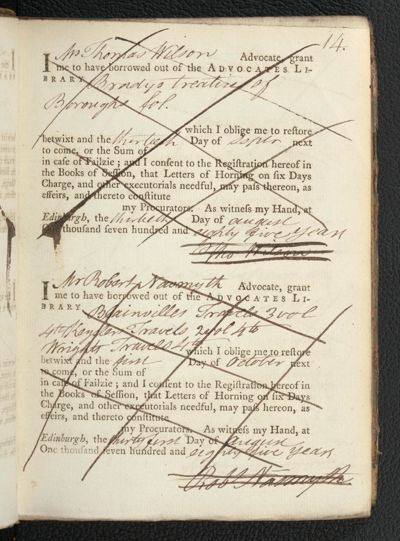 14.
I Mr Thomas Wilson Advocate, grant
me to have borrowed out of the ADVOCATES LI-
BRARY Brady's treatise of
Boroughs fol.
which I oblige me to restore
betwixt and the thirtieth Day of Sepr next
to come, or the Sum of
in case of Failzie; and I consent to the Registration hereof in
the Books of Session, that Letters of Horning on six Days
Charge, and other executorials needful, may pass thereon, as
effeirs, and thereto constitute
my Procurators. As witness my Hand, at
Edinburgh, the thirtieth Day of august
One thousand seven hundred and eighty five years
Tho Wilson
I Mr Robert Nasmyth Advocate, grant
me to have borrowed out of the ADVOCATES LI-
BRARY Blainvilles Travels 3 vol
4to Keyslers Travels 2 vol 4to
Wrights Travels 4to which I oblige me to restore
betwixt and the first Day of October next
to come, or the Sum of
in case of Failzie; and I consent to the Registration hereof in
the Books of Session, that Letters of Horning on six Days
Charge, and other executorials needful, may pass hereon, as
effeirs, and thereto constitute
my Procurators. As witness my Hand, at
Edinburgh, the thirty first Day of August
One thousand seven hundred and eighty five years
Robt Nasmyth